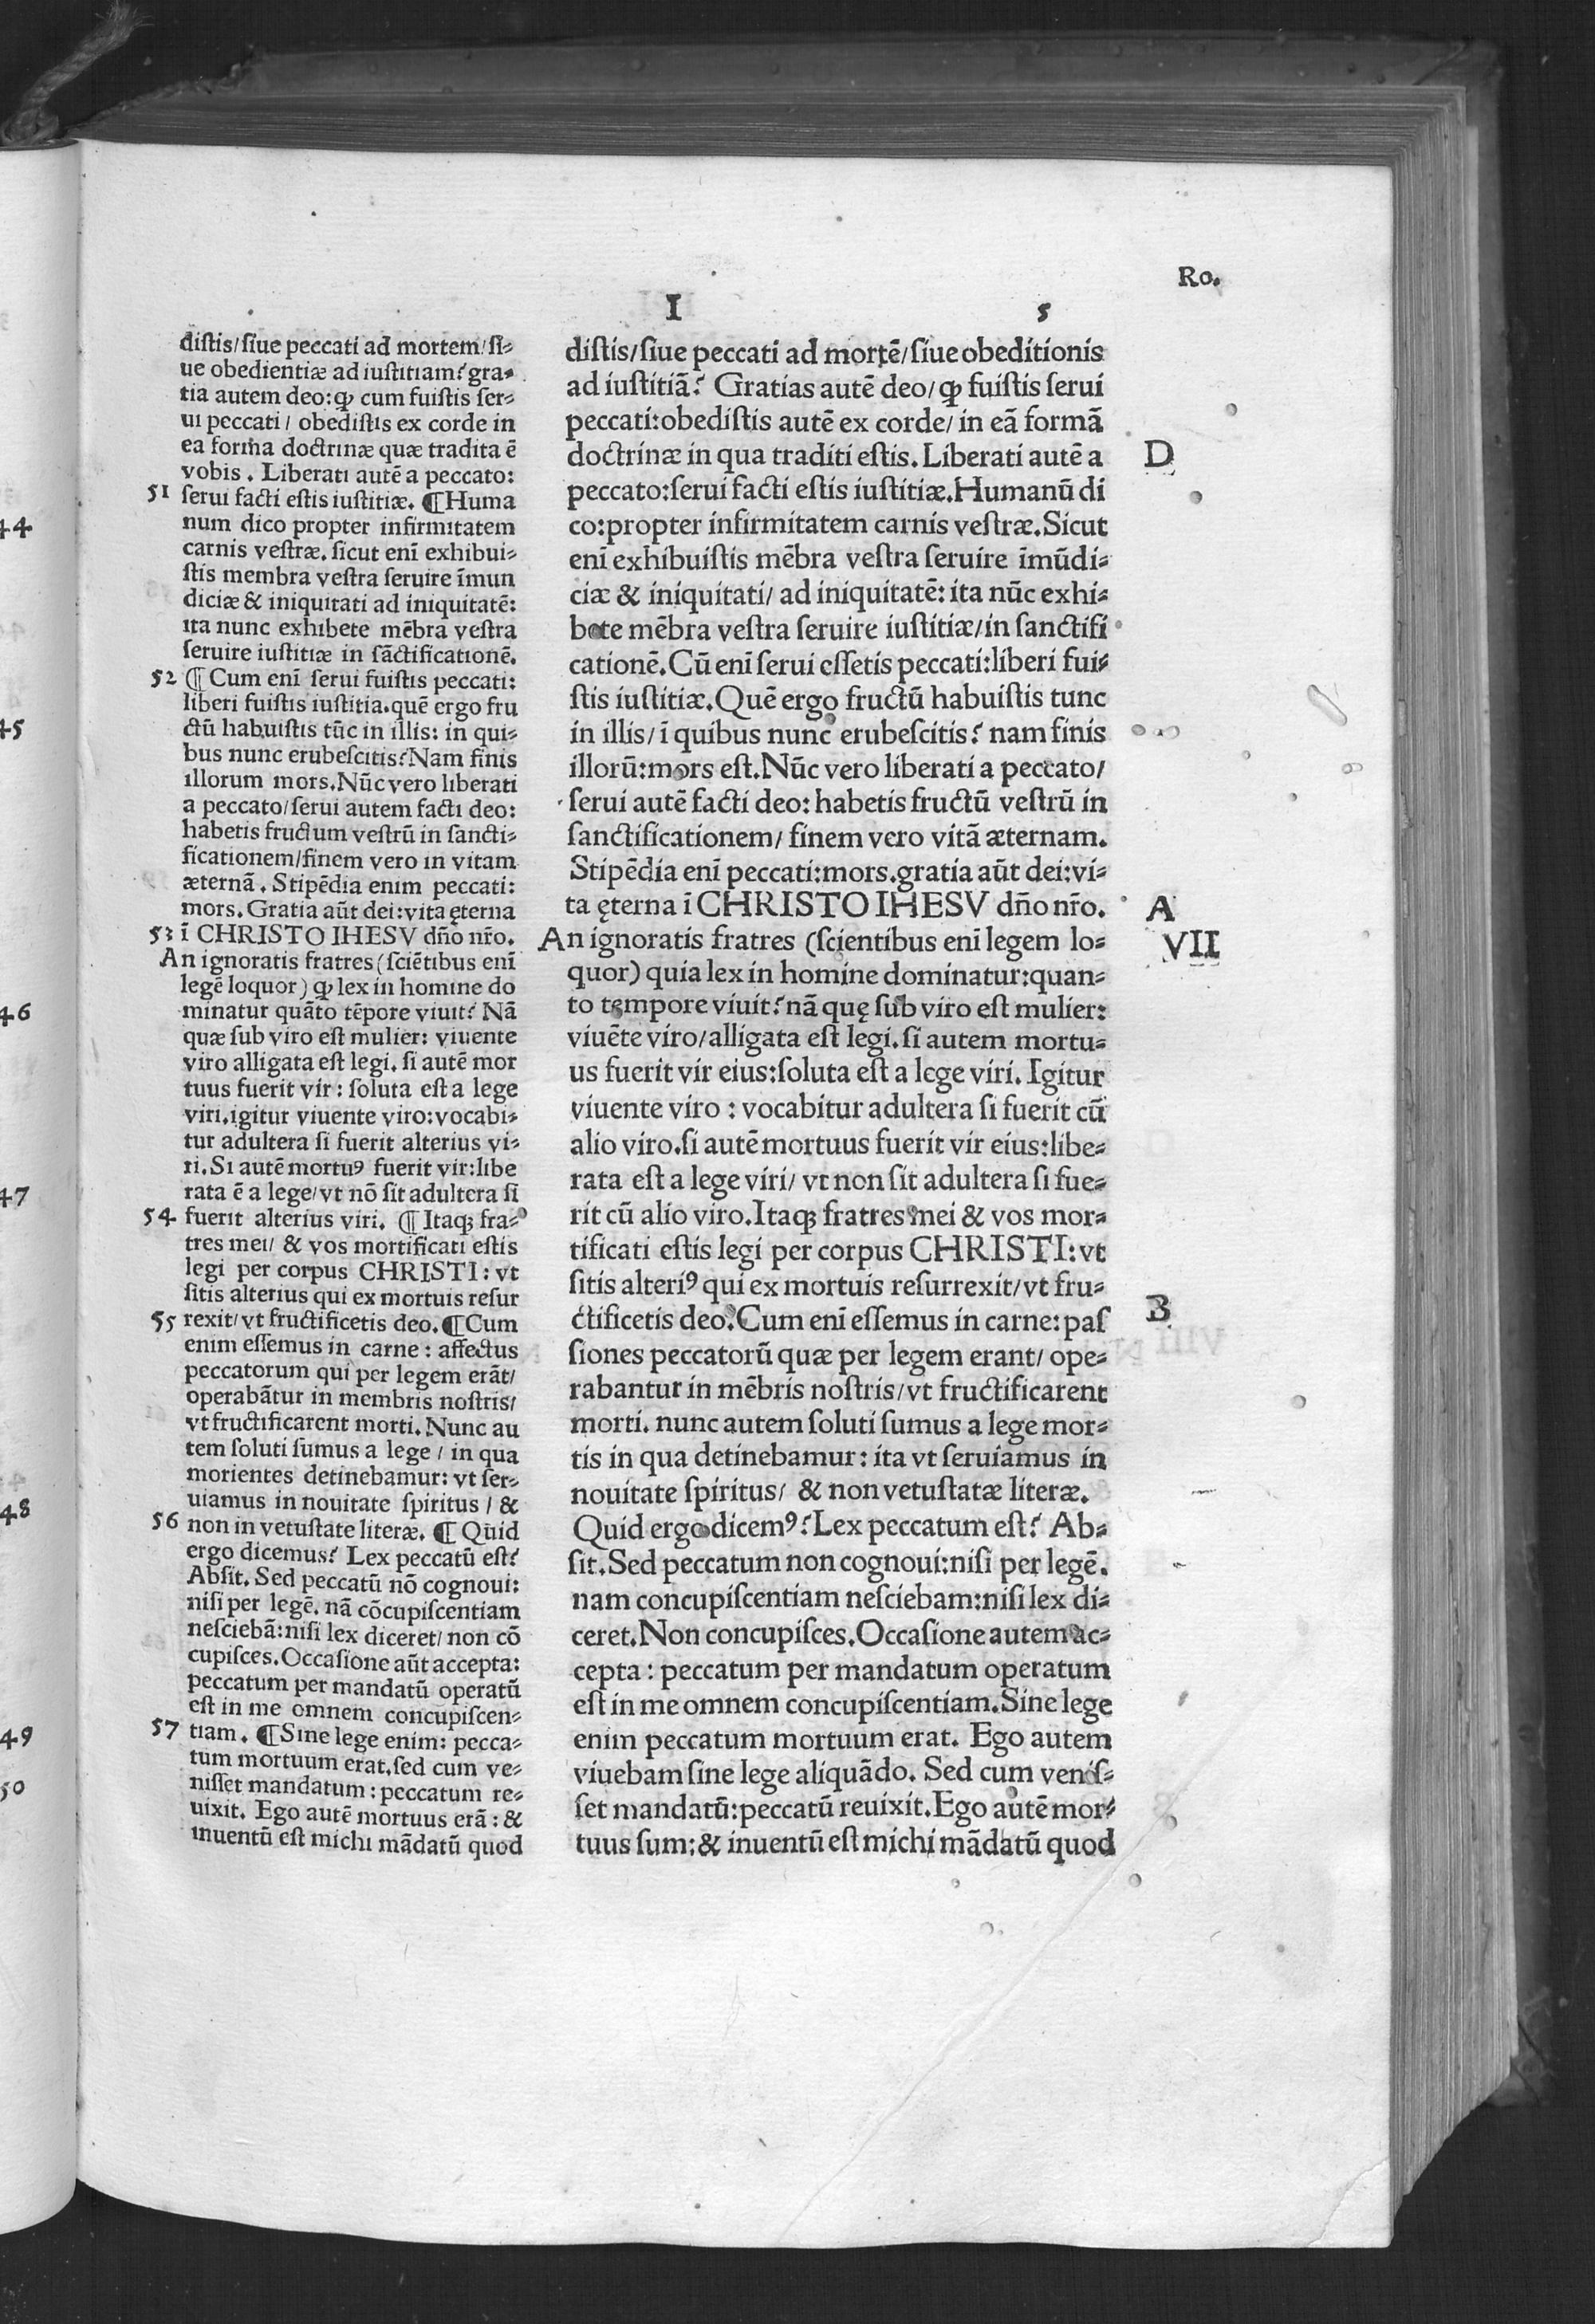 Ro.
I 5
distis/siue peccati ad mortem/si⸗
ue obedientiæ ad iustitiam? gra⸗
tia autem deo: ꝙ cum fuistis ser⸗
ui peccati/ obedistis ex corde in
ea forma doctrinæ quæ tradita ē
vobis. Liberati autē a peccato:
51 serui facti estis iustitiæ. ¶Huma
num dico propter infirmitatem
carnis vestræ. sicut enī exhibui⸗
stis membra vestra seruire īmun
diciæ & iniquitati ad iniquitatē:
ita nunc exhibete mēbra vestra
seruire iustitiæ in sāctificationē.
52 ¶Cum enī serui fuistis peccati:
liberi fuistis iustitia. quē ergo fru
ctū habuistis tūc in illis: in qui⸗
bus nunc erubescitis? Nam finis
illorum mors. Nūc vero liberati
a peccato/serui autem facti deo:
habetis fructum vestrū in sancti⸗
ficationem/finem vero in vitam
æternā. Stipēdia enim peccati:
mors. Gratia aūt dei: vita ęterna
53 ī CHRISTO IHESV dño nr̄o.
An ignoratis fratres (sciētibus enī
legē loquor) ꝙ lex in homine do
minatur quāto tēpore viuit? Nā
quæ sub viro est mulier: viuente
viro alligata est legi. si autē mor
tuus fuerit vir: soluta est a lege
viri. igitur viuente viro: vocabi⸗
tur adultera si fuerit alterius vi⸗
ri. Si autē mortuꝰ fuerit vir: libe
rata ē a lege/vt nō sit adultera si
54 fuerit alterius viri. ¶Itaqꝫ fra⸗
tres mei/ & vos mortificati estis
legi per corpus CHRISTI: vt
sitis alterius qui ex mortuis resur
55 rexit/vt fructificetis deo. ¶Cum
enim essemus in carne: affectus
peccatorum qui per legem erāt/
operabātur in membris nostris/
vt fructificarent morti. Nunc au
tem soluti sumus a lege/ in qua
morientes detinebamur: vt ser⸗
uiamus in nouitate spiritus/ &
56 non in vetustate literæ. ¶Quid
ergo dicemus? Lex peccatū est?
Absit. Sed peccatū nō cognoui:
nisi per legē. nā cōcupiscentiam
nesciebā: nisi lex diceret/ non cō
cupisces. Occasione aūt accepta:
peccatum per mandatū operatū
est in me omnem concupiscen⸗
57 tiam. ¶Sine lege enim: pecca⸗
tum mortuum erat. sed cum ve⸗
nisset mandatum: peccatum re⸗
uixit. Ego autē mortuus erā: &
inuentū est michi mādatū quod
distis/siue peccati ad mortē/siue obeditionis
ad iustitiā? Gratias autē deo/ ꝙ fuistis serui
peccati: obedistis autē ex corde/ in eā formā
doctrinæ in qua traditi estis. Liberati autē a
D
peccato: serui facti estis iustitiæ. Humanū di
co: propter infirmitatem carnis vestræ. Sicut
enī exhibuistis mēbra vestra seruire īmūdi⸗
ciæ & iniquitati/ ad iniquitatē: ita nūc exhi⸗
bete mēbra vestra seruire iustitiæ/in sanctifi
cationē. Cū enī serui essetis peccati: liberi fui⸗
stis iustitiæ. Quē ergo fructū habuistis tunc
in illis/ ī quibus nunc erubescitis? nam finis
illorū: mors est. Nūc vero liberati a peccato/
serui autē facti deo: habetis fructū vestrū in
sanctificationem/ finem vero vitā æternam.
Stipēdia enī peccati: mors. gratia aūt dei: vi⸗
ta ęterna ī CHRISTO IHESV dño nr̄o.
A
An ignoratis fratres (scientibus enī legem lo⸗
VII
quor) quia lex in homine dominatur: quan⸗
to tempore viuit? nā quę sub viro est mulier:
viuēte viro/alligata est legi. si autem mortu⸗
us fuerit vir eius: soluta est a lege viri. Igitur
viuente viro: vocabitur adultera si fuerit cū
alio viro. si autē mortuus fuerit vir eius: libe⸗
rata est a lege viri/ vt non sit adultera si fue⸗
rit cū alio viro. Itaqꝫ fratres mei & vos mor⸗
tificati estis legi per corpus CHRISTI: vt
sitis alteriꝰ qui ex mortuis resurrexit/vt fru⸗
ctificetis deo. Cum enī essemus in carne: pas
B
siones peccatorū quæ per legem erant/ ope⸗
rabantur in mēbris nostris/vt fructificarent
morti. nunc autem soluti sumus a lege mor⸗
tis in qua detinebamur: ita vt seruiamus in
nouitate spiritus/ & non vetustatæ literæ.
Quid ergo dicemꝰ? Lex peccatum est? Ab⸗
sit. Sed peccatum non cognoui: nisi per legē.
nam concupiscentiam nesciebam: nisi lex di⸗
ceret. Non concupisces. Occasione autem ac⸗
cepta: peccatum per mandatum operatum
est in me omnem concupiscentiam. Sine lege
enim peccatum mortuum erat. Ego autem
viuebam sine lege aliquādo. Sed cum venis⸗
set mandatū: peccatū reuixit. Ego autē mor⸗
tuus sum: & inuentū est michi mādatū quod
44
45
46
47
48
49
50